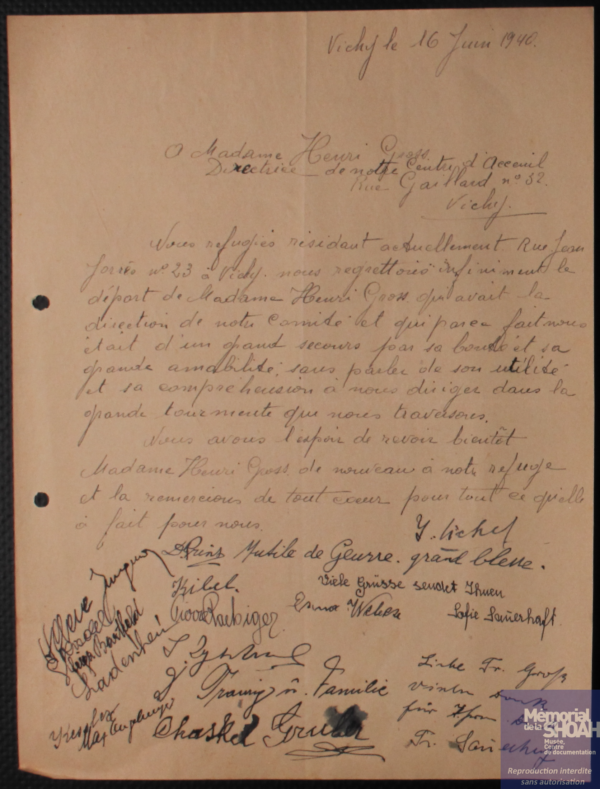 Vichy le 16 Juin 1940.
A Madame Henri Gross
Directrice de notre Centre d'Acceuil
Rue Gaillard n° 32.
Vichy.
Nous refugiés résidant actuellement Rue Jean
n° 23 à Vichy. nous regrettons infiniment le
départ de Madame Henri Gross qui avait la
direction de notre Comité et qui par ce fait nous
était d'un grand secours par sa bonté et sa
grande amabilité, sans parler de son utilité
et sa compréhension à nous diriger dans la
grande tourmente que nous traversons.
Nous avons l'espoir de revoir bientôt
Madame Henri Gross de nouveau à notre refuge
et la remercions de tout cœur pour tout ce qu'elle
à fait pour nous.
Mutile de Geurre. grand blesse.
Kibel
Viele Grüsse sendet Ihnen
Erna Weber
Sofie Sauerhaft.
u. Familie
Chaskel Gruber
Liebe Fr. Groß
vielen Dank
für
Fr.
Mémorial
de la SHOAH
Musée,
Centre
de documentation
Reproduction interdite
sans autorisation